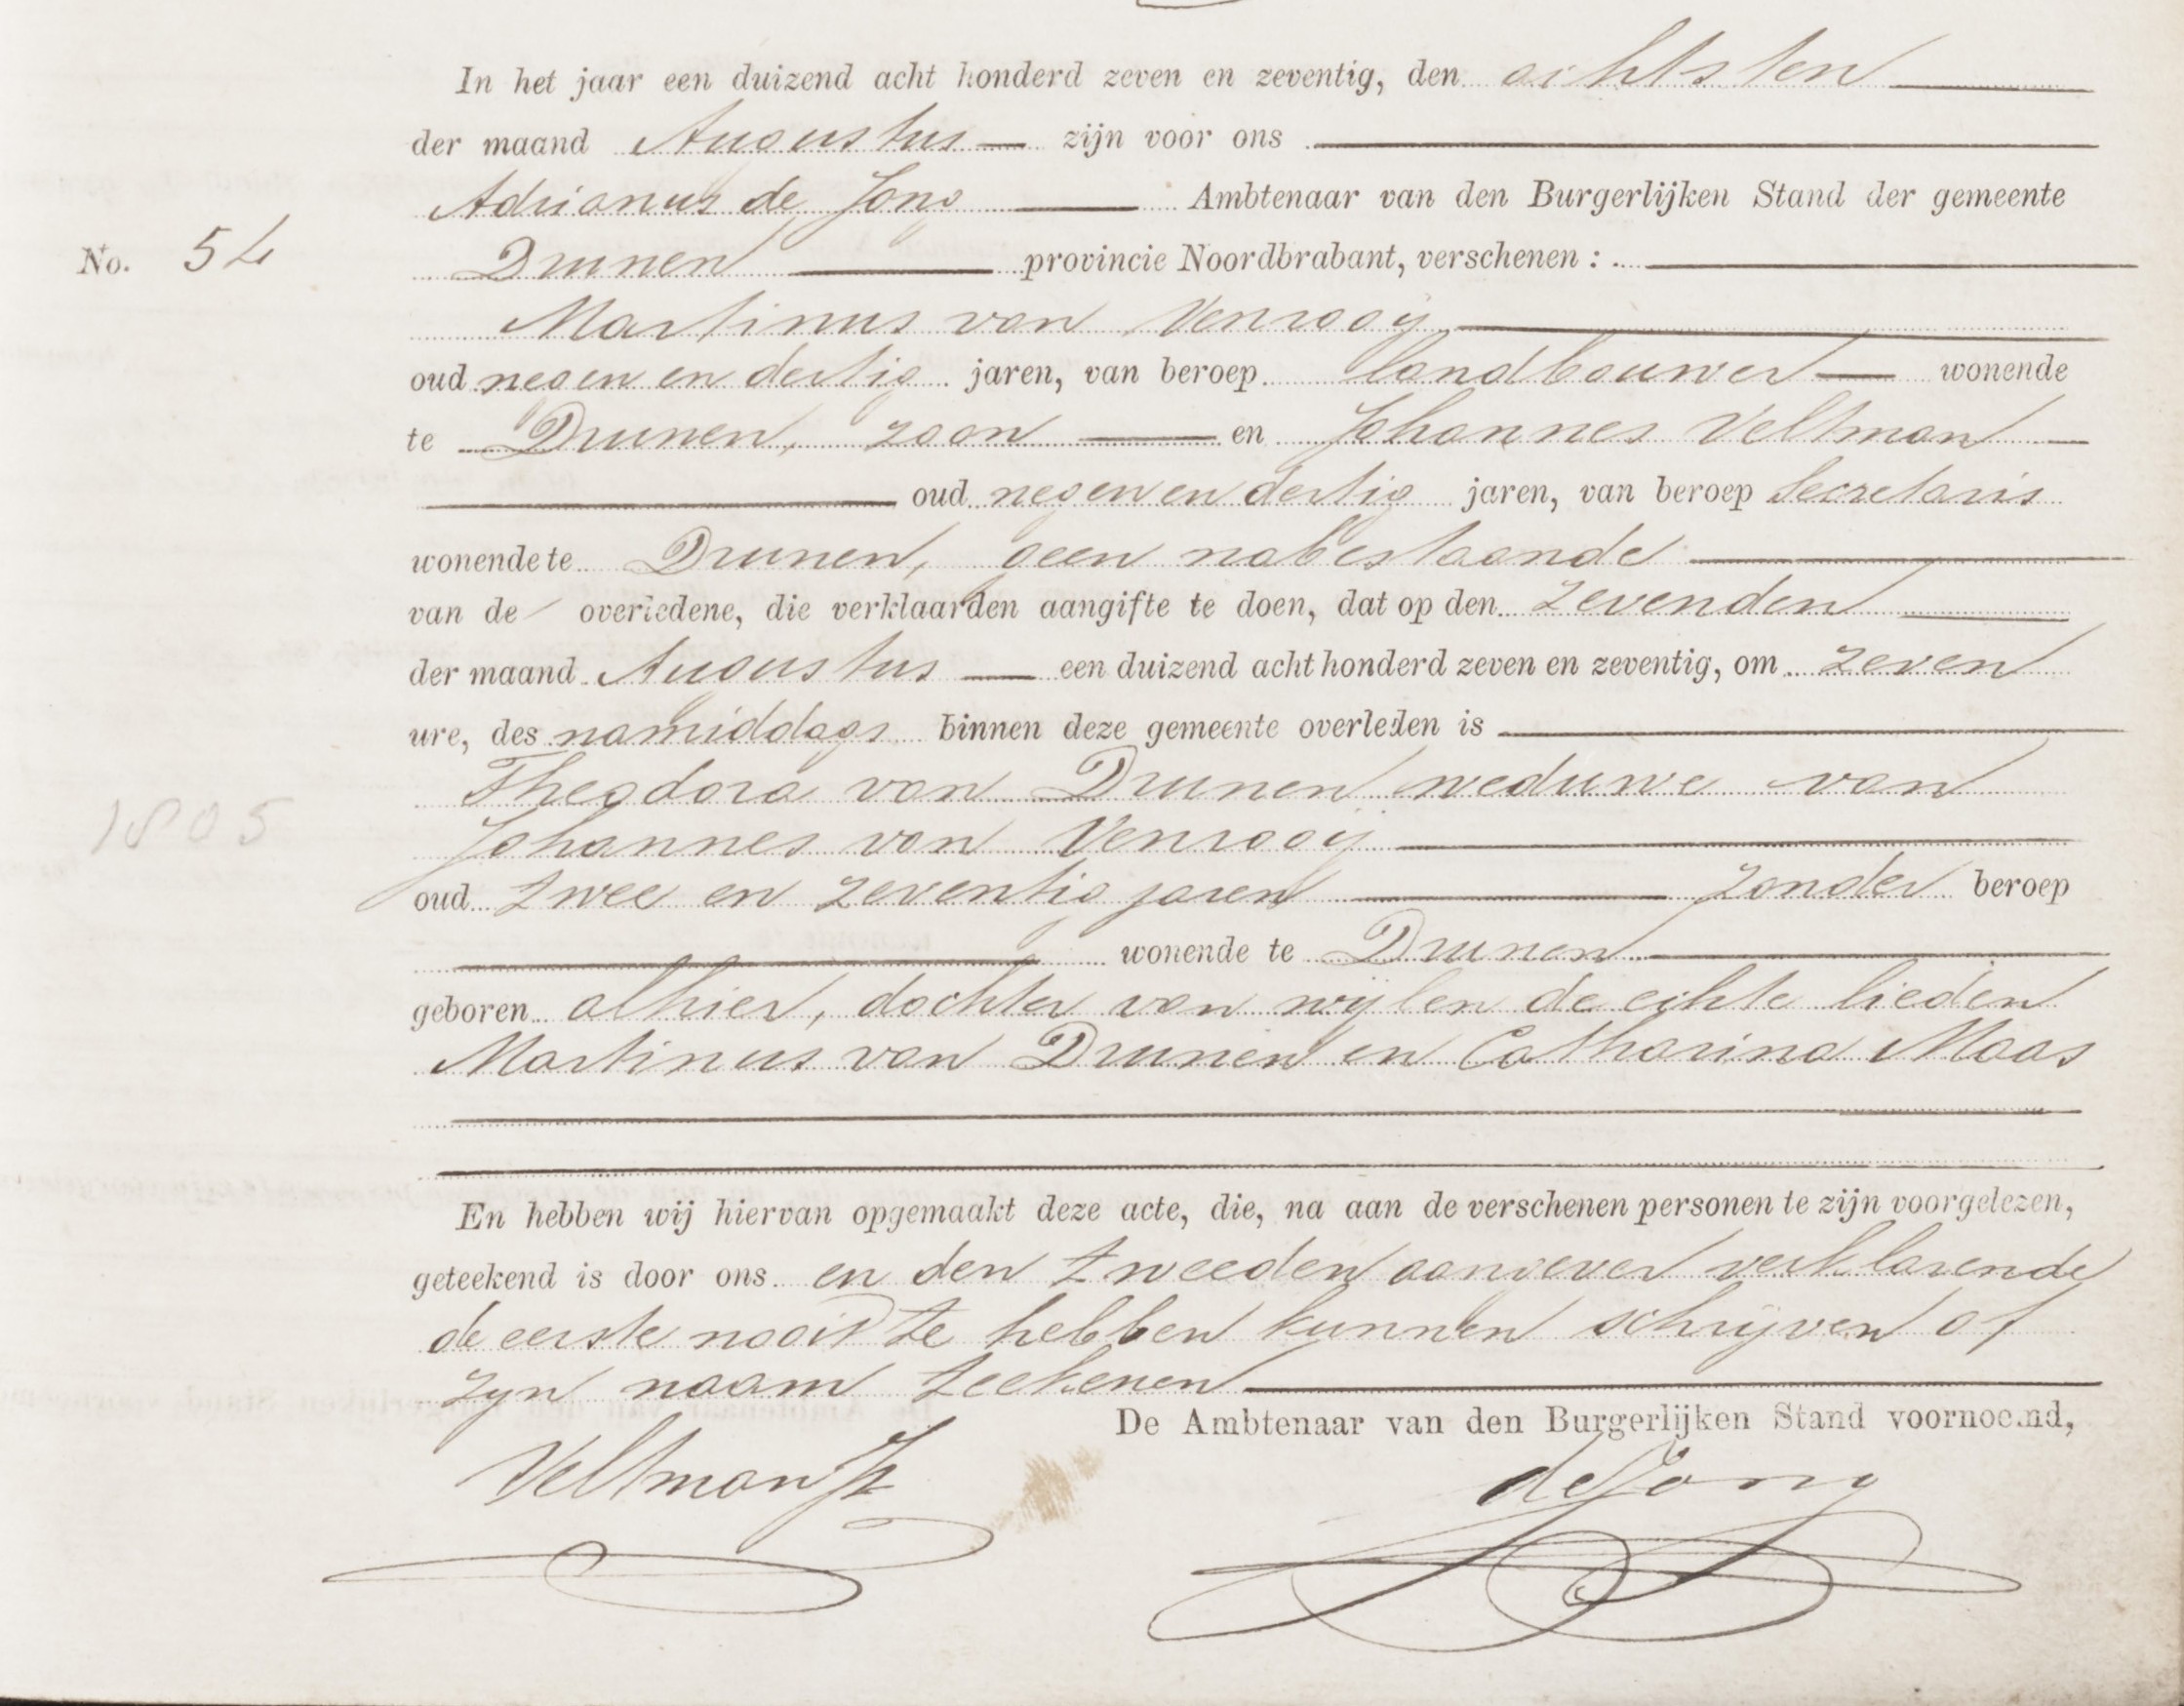 In het jaar een duizend acht honderd zeven en zeventig, den achtsten
der maand Augustus zijn voor ons
Adrianus de Jong Ambtenaar van den Burgerlijken Stand der gemeente
No. 54
Drunen provincie Noordbrabant, verschenen :
Martinus van Venrooij
oud negen en dertig jaren, van beroep landbouwer wonende
te Drunen, zoon en Johannes Veltman
oud negen en dertig jaren, van beroep Secretaris
wonende te Drunen, geen nabestaande
van de overledene, die verklaarden aangifte te doen, dat op den zevenden
der maand Augustus een duizend acht honderd zeven en zeventig, om zeven
ure, des namiddags binnen deze gemeente overleden is
Theodora van Drunen weduwe van
1805
Johannes van Venrooij
oud twee en zeventig jaren zonder beroep
wonende te Drunen
geboren alhier, dochter van wijlen de echte lieden
Martinus van Drunen en Catharina Maas
En hebben wij hiervan opgemaakt deze acte, die, na aan de verschenen personen te zijn voorgelezen,
geteekend is door ons en den tweeden aangever verklarende
de eerste nooit te hebben kunnen schrijven of
zijn naam teekenen
De Ambtenaar van den Burgerlijken Stand voornoemd,
Veltman Jz
de Jong